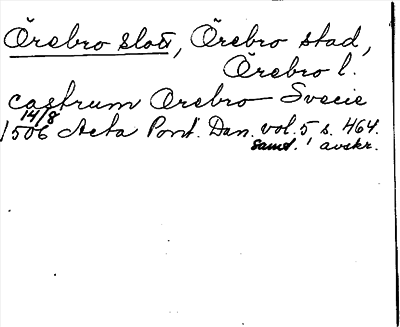 Örebro slott, Örebro stad,
Örebro l.
castrum Orebro Svecie
14/8
1506 Acta Pont. Dan. vol. 5 s. 464.
samt. avskr.